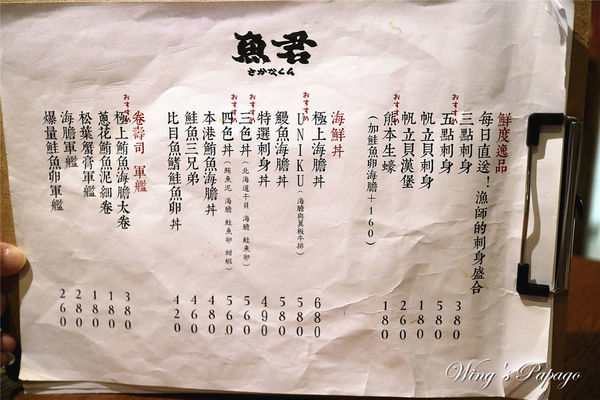 魚君
さかなくん
鮮度逸品
每日直送！漁師的刺身盛合
おすすめ
三點刺身 380
五點刺身 580
帆立貝刺身 180
帆立貝漢堡 260
おすすめ
熊本生蠔 180
(加鮭魚卵海膽+160)
海鮮丼
極上海膽丼 680
おすすめ
UNIKU(海膽與翼板牛排) 580
鰻魚海膽丼 580
特選刺身丼 490
おすすめ
三色丼(北海道干貝 海膽 鮭魚卵) 560
おすすめ
四色丼(鮪魚泥 海膽 鮭魚卵 甜蝦) 560
本港鮪魚海膽丼 480
鮭魚三兄弟 460
比目魚鰭鮭魚卵丼 420
卷壽司 軍艦
おすすめ
極上鮪魚海膽太卷 380
蔥花鮪魚泥細卷 180
松葉蟹膏軍艦 180
海膽軍艦 280
爆量鮭魚卵軍艦 260
Wing's Papago